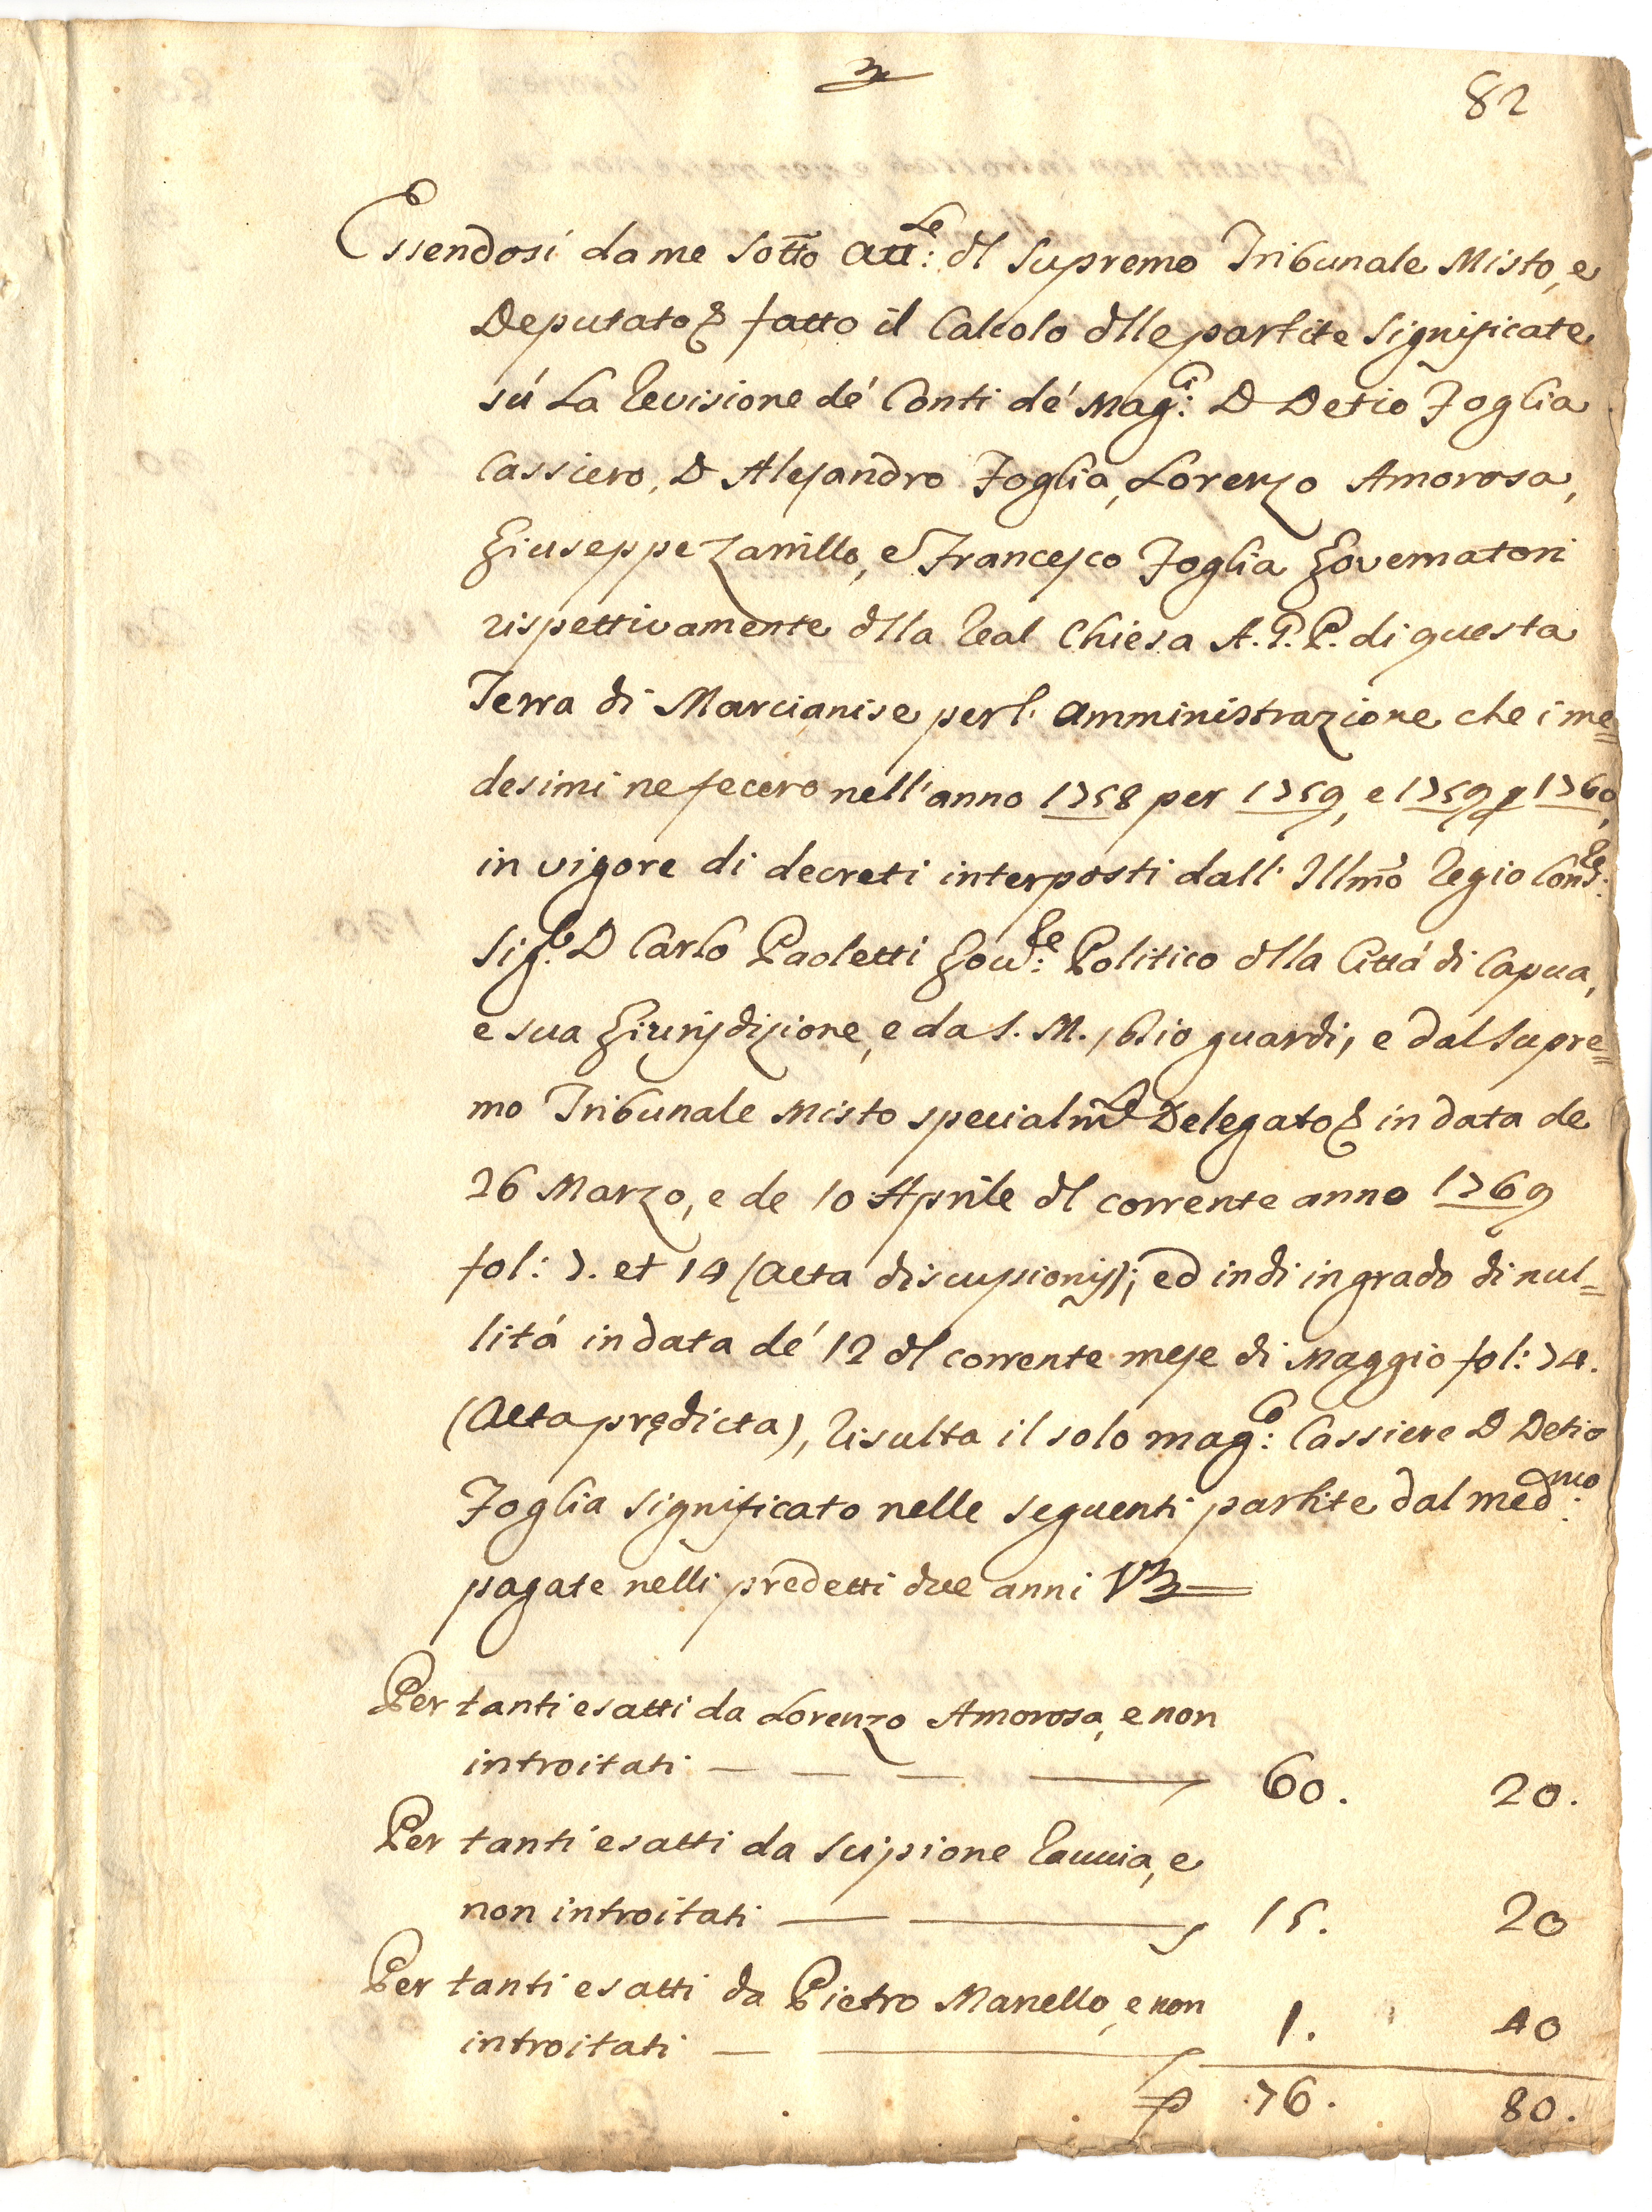 82
Essendosi da me sotto att:le dl Supremo Tribunale Misto, e
Deputato fatto il Calcolo dlle partite significate
sú La Revisione dé Conti dé Mag:ci D Detio Foglia
Cassiero, D Alesandro Foglia, Lorenzo Amorosa,
Giuseppe Zarrillo, e Francesco Foglia Governatori
rispettivamente dlla Real Chiesa A.G.P. di questa
Terra di Marcianise per l' amministrazione che i me=
desimi ne fecero nell'anno 1758 per 1759, e 1759 p 1760,
in vigore di decreti interposti dall' Illmo Regio Cons:re
Sig:r D Carlo Paoletti Gov:re Politico dlla Cittá di Capua,
e sua Giurisdizione, e da S. M., Dio guardi, e dal Supre=
mo Tribunale Misto specialmte Delegato in data de
26 Marzo, e de 10 Aprile dl corrente anno 1769
fol: 7. et 14 (acta discussionis); ed indi in grado di nul=
litá in data dé 12 dl corrente mese di Maggio fol: 74.
(Acta prędicta), Risulta il solo mag:co Cassiere D Detio
Foglia significato nelle seguenti partite dal med:mo
pagate nelli predetti due anni Vz
Per tanti esatti da Lorenzo Amorosa, e non
introitati — — — — 60. 20.
Per tanti esatti da Scipione Rauccia, e
non introitati — — 15. 20
Per tanti esatti da Pietro Manello, e non
introitati — — 1. 40
76. 80.